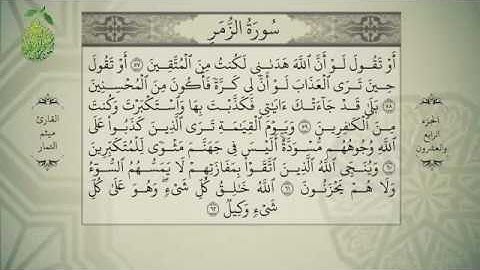 سُورَةُ الزُّمَرِ
أَوْ تَقُولَ لَوْ أَنَّ اللَّهَ هَدَىٰنِي لَكُنتُ مِنَ الْمُتَّقِينَ ٥٧ أَوْ تَقُولَ
حِينَ تَرَى الْعَذَابَ لَوْ أَنَّ لِي كَرَّةً فَأَكُونَ مِنَ الْمُحْسِنِينَ
٥٨ بَلَىٰ قَدْ جَاءَتْكَ ءَايَٰتِي فَكَذَّبْتَ بِهَا وَاسْتَكْبَرْتَ وَكُنتَ
مِنَ الْكَٰفِرِينَ ٥٩ وَيَوْمَ الْقِيَٰمَةِ تَرَى الَّذِينَ كَذَبُوا عَلَى
اللَّهِ وُجُوهُهُم مُّسْوَدَّةٌ أَلَيْسَ فِي جَهَنَّمَ مَثْوًى لِّلْمُتَكَبِّرِينَ
٦٠ وَيُنَجِّي اللَّهُ الَّذِينَ اتَّقَوْا بِمَفَازَتِهِمْ لَا يَمَسُّهُمُ السُّوءُ
وَلَا هُمْ يَحْزَنُونَ ٦١ اللَّهُ خَٰلِقُ كُلِّ شَيْءٍ وَهُوَ عَلَىٰ كُلِّ
شَيْءٍ وَكِيلٌ ٦٢
الجزء
الرابع
والعشرون
القارئ
ميثم
التمار